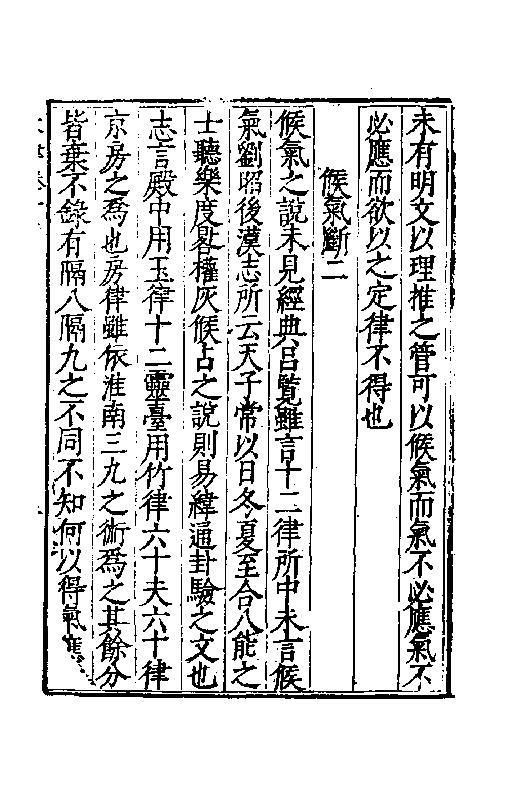 未有明文以理推之管可以候氣而氣不必應氣不
必應而欲以之定律不得也
候氣斷二
候氣之說未見經典吕覽雖言十二律所中未言候
氣劉昭後漢志所云天子常以日冬夏至合八能之
士聽樂度晷權灰候占之說則易緯通卦驗之文也
志言殿中用玉律十二靈臺用竹律六十夫六十律
京房之爲也房律雖依淮南三九之術爲之其餘分
皆棄不錄有隔八隔九之不同不知何以得氣應